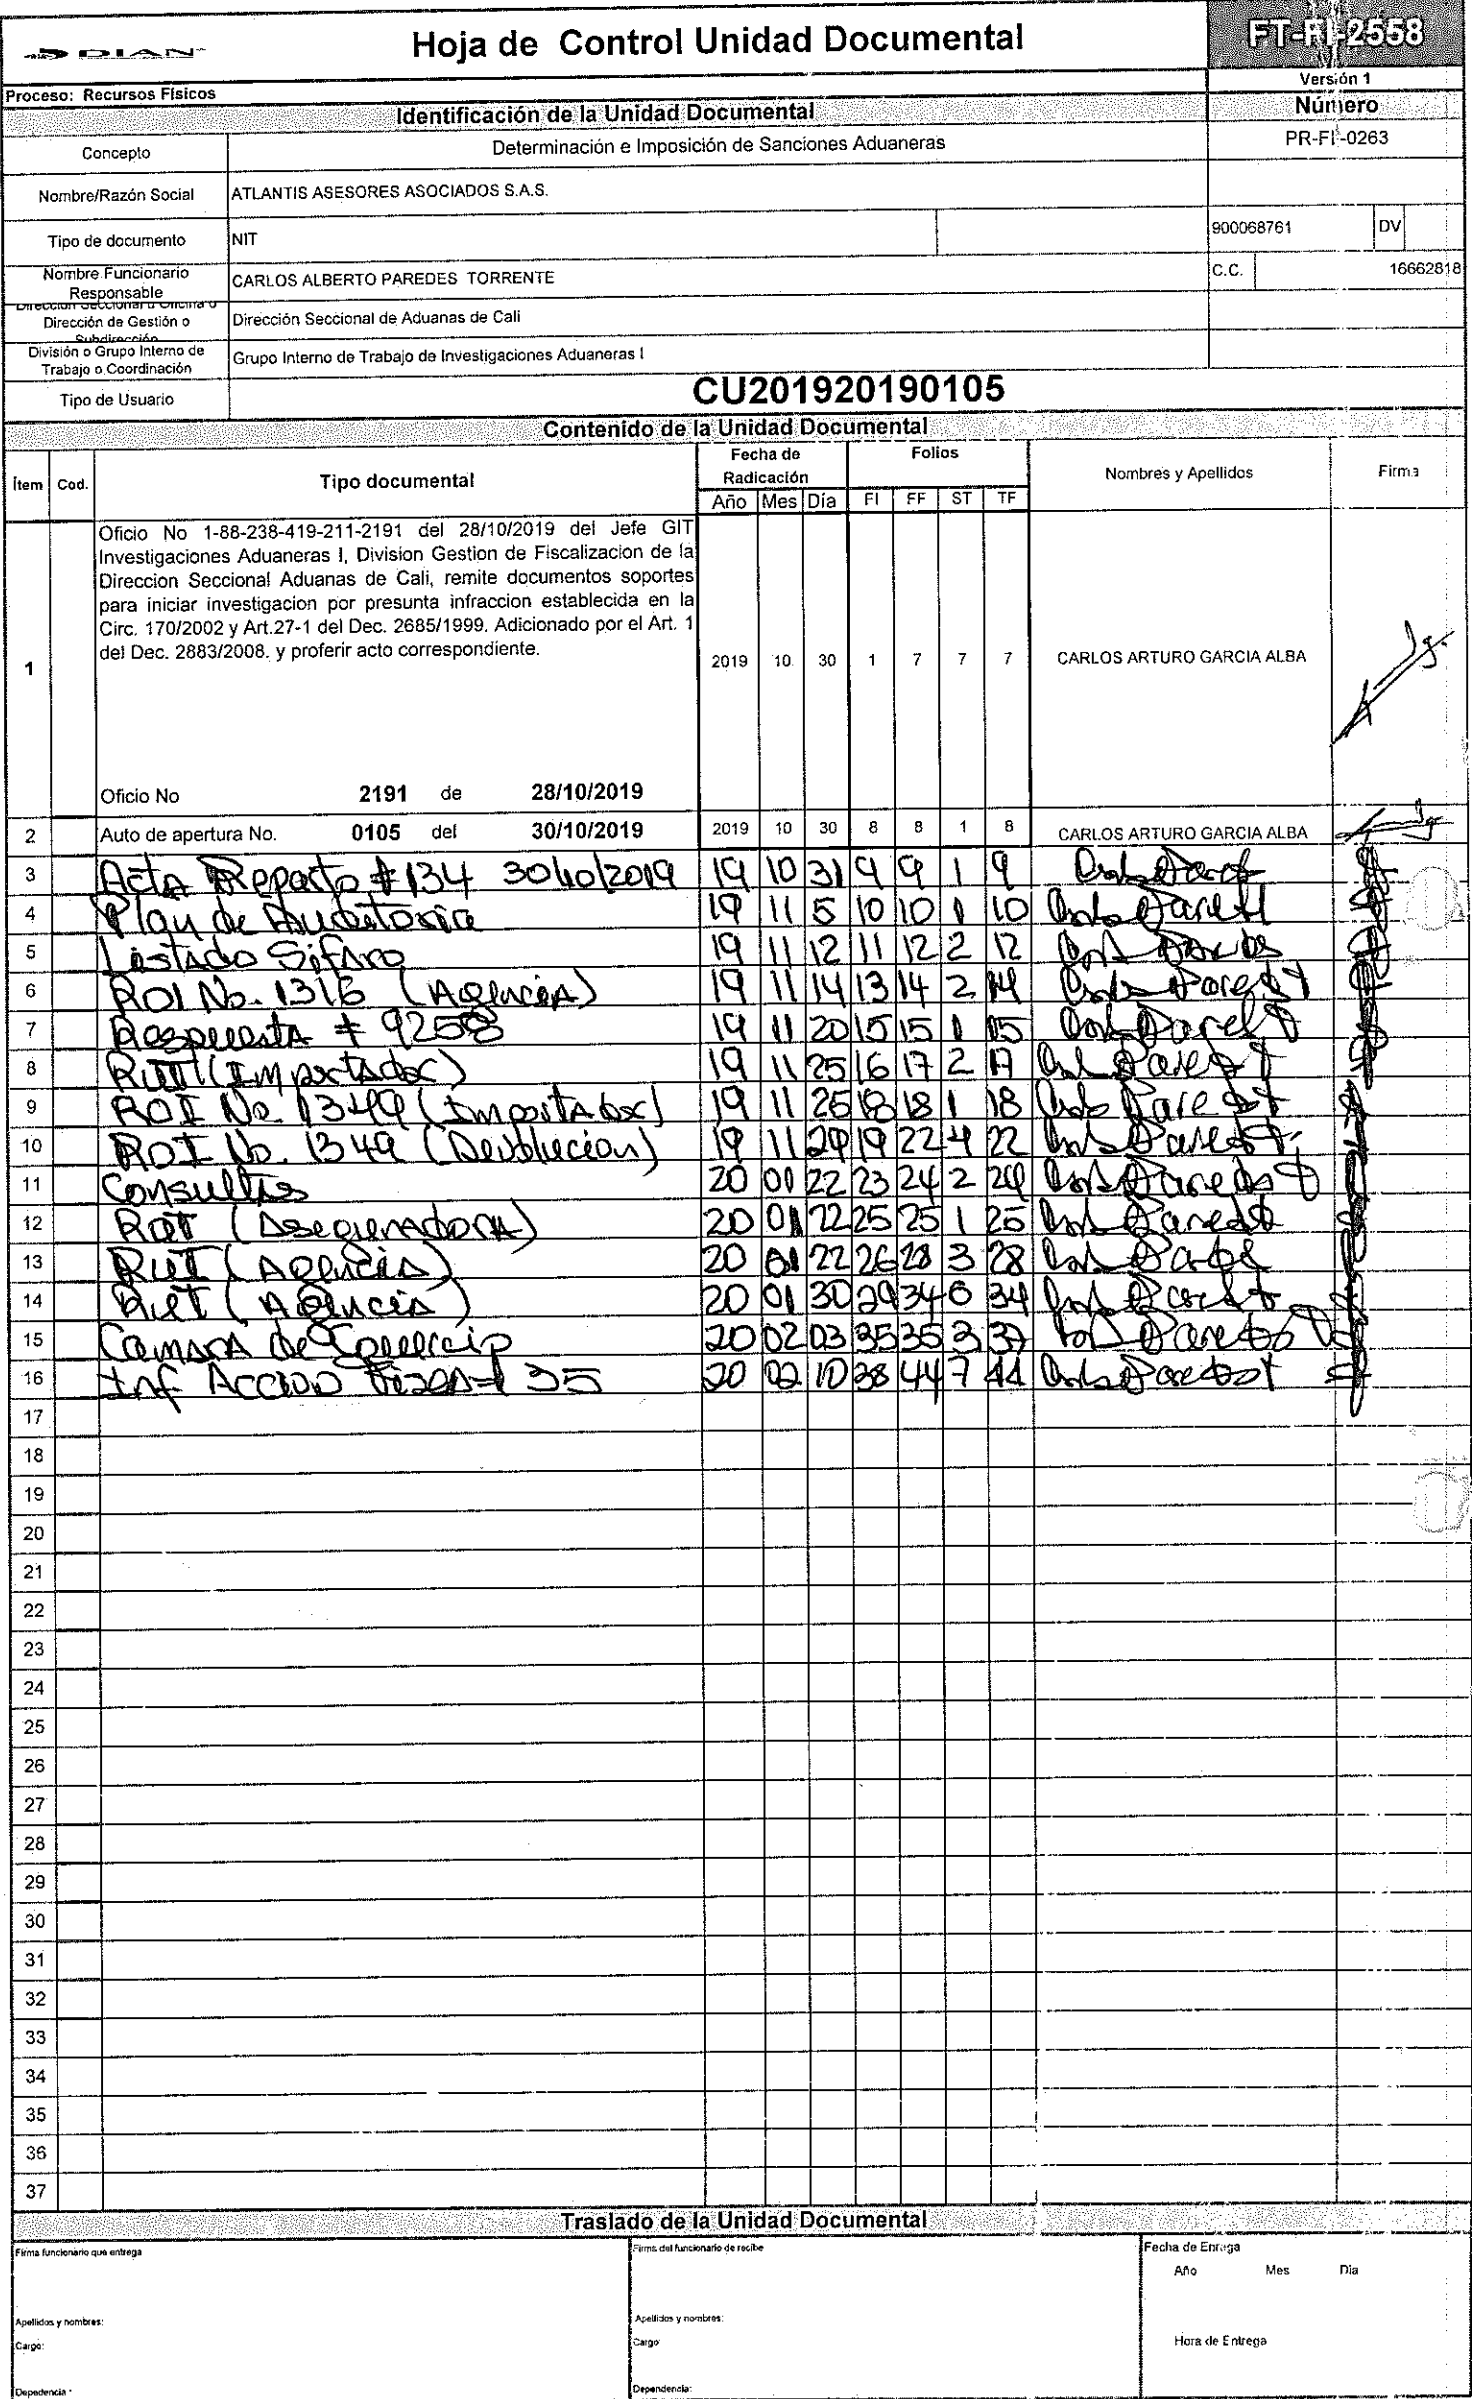 DIAN
Hoja de Control Unidad Documental
FT-FI-2558
Proceso: Recursos Físicos
Versión 1
Identificación de la Unidad Documental
Número
Concepto
Determinación e Imposición de Sanciones Aduaneras
PR-FI-0263
Nombre/Razón Social
ATLANTIS ASESORES ASOCIADOS S.A.S.
Tipo de documento
NIT
900068761
DV
Nombre Funcionario
Responsable
CARLOS ALBERTO PAREDES TORRENTE
C.C.
16662818
Dirección Seccional u Oficina o
Dirección de Gestión o
Subdirección
Dirección Seccional de Aduanas de Cali
División o Grupo Interno de
Trabajo o Coordinación
Grupo Interno de Trabajo de Investigaciones Aduaneras I
Tipo de Usuario
CU201920190105
Contenido de la Unidad Documental
Ítem Cod. Tipo documental Fecha de Radicación Folios Nombres y Apellidos Firma
Año Mes Día FI FF ST TF
Oficio No 1-88-238-419-211-2191 del 28/10/2019 del Jefe GIT
Investigaciones Aduaneras I, Division Gestion de Fiscalizacion de la
Direccion Seccional Aduanas de Cali, remite documentos soportes
para iniciar investigacion por presunta infraccion establecida en la
Circ. 170/2002 y Art.27-1 del Dec. 2685/1999. Adicionado por el Art. 1
del Dec. 2883/2008. y proferir acto correspondiente.
1 2019 10 30 1 7 7 7 CARLOS ARTURO GARCIA ALBA
Oficio No 2191 de 28/10/2019
2 Auto de apertura No. 0105 del 30/10/2019 2019 10 30 8 8 1 8 CARLOS ARTURO GARCIA ALBA
3 Acta Reparto # 134 30/10/2019 19 10 31 9 9 1 9
4 Plan de Auditoria 19 11 5 10 10 1 10
5 Listado Sifaro 19 11 12 11 12 2 12
6 ROI No. 1316 (Agencia) 19 11 14 13 14 2 14
7 Respuesta # 9258 19 11 20 15 15 1 15
8 RUT (Importador) 19 11 25 16 17 2 17
9 ROI No. 1349 (Importador) 19 11 26 18 18 1 18
10 ROI No. 1349 (Devolucion) 19 11 29 19 22 4 22
11 Consultas 20 01 22 23 24 2 24
12 RUT (Aseguradora) 20 01 22 25 25 1 25
13 RUT (Agencia) 20 01 22 26 28 3 28
14 RUT (Agencia) 20 01 30 29 34 6 34
15 Camara de Comercio 20 02 03 35 35 3 37
16 Inf Accion Fiscal 35 20 02 10 38 44 7 44
17
18
19
20
21
22
23
24
25
26
27
28
29
30
31
32
33
34
35
36
37
Traslado de la Unidad Documental
Firma funcionario que entrega
Firma del funcionario de recibe
Fecha de Enrega
Año Mes Dia
Apellidos y nombres:
Apellidos y nombres:
Cargo:
Cargo
Hora de Entrega
Depedencia
Dependencia: